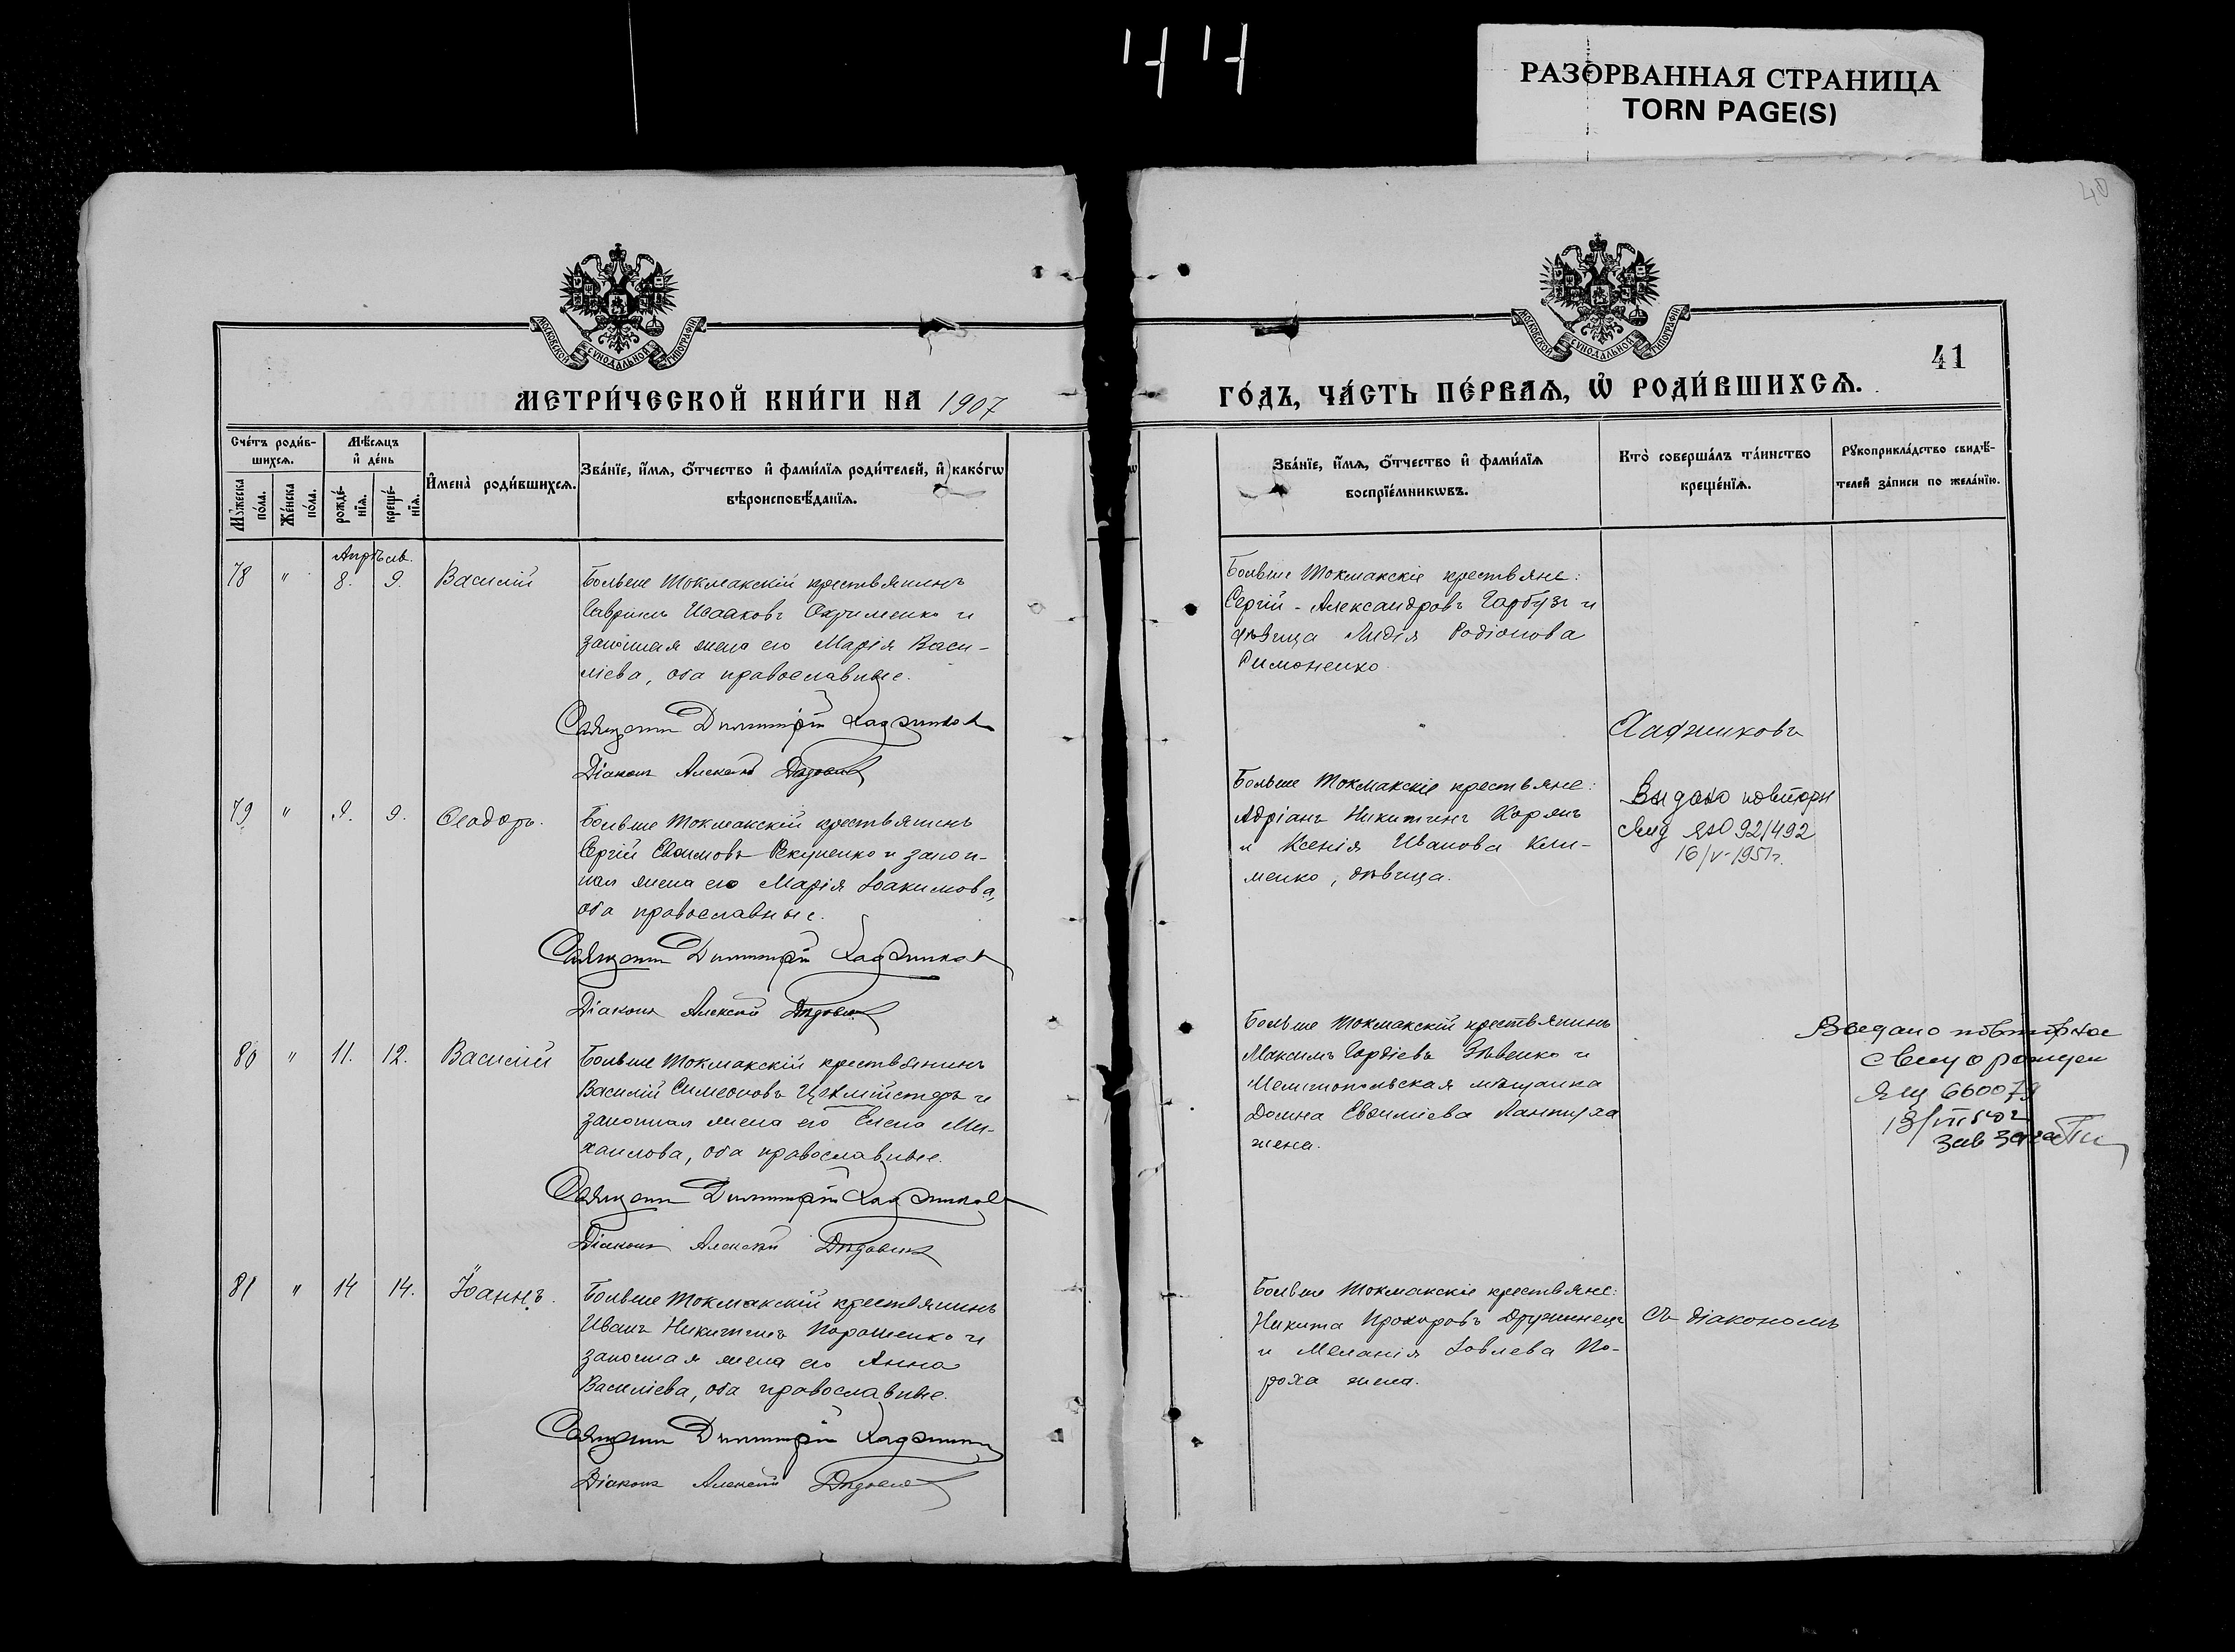 РАЗОРВАННАЯ СТРАНИЦА
TORN PAGE(S)
40
МОСКОВСКОЙ СУНОДАЛЬНОЙ ТИПОГРАФІИ
МОСКОВСКОЙ СУНОДАЛЬНОЙ ТИПОГРАФІИ
41
МЕТРИ́ЧЕСКОЙ КНИ́ГИ НА 1907
ГО́ДЪ, ЧА́СТЬ ПЕ́РВАѦ, Ѡ҆ РОДИ́ВШИХСѦ.
Сче́тъ роди́в-
шихсѧ.
Мꙋжеска по́ла.
Же́нска по́ла.
Мѣ́сѧцъ
и҆ де́нь
рожде́-
нїѧ.
креще́-
нїѧ.
И҆мена̀ роди́вшихсѧ.
Зва́нїе, и҆́мѧ, ѻ҆́тчество и҆ фами́лїѧ роди́телей, и҆ како́гѡ
вѣроисповѣ́данїѧ.
Зва́нїе, и҆́мѧ, ѻ҆́тчество и҆ фами́лїѧ
воспрїе́мникѡвъ.
Кто̀ соверша́лъ та́инство
креще́нїѧ.
Рꙋкоприкла́дство свидѣ́-
телей за́писи по жела́нїю.
Апрѣль.
78 " 8. 9. Василій
Больше Токмакскій крестьянинъ
Гавриилъ Исааковъ Охрименко и
законная жена его Марія Васи-
ліева, оба православные.
Священ Димитрій Хаджиковъ
Діаконъ Алексій
Больше Токмакскіе крестьяне:
Сергій Александровъ Гарбузъ и
дѣвица Лидія Родіонова
Симоненко.
Хаджиковъ
79 " 9. 9. Ѳеодоръ.
Больше Токмакскій крестьянинъ
Сергій Евѳимовъ Рекуненко и закон-
ная жена его Марія Іоакимова,
оба православные.
Священ Димитрій Хаджиковъ
Діаконъ Алексій
Больше Токмакскіе крестьяне:
Адріанъ Никитинъ Корянъ
и Ксенія Иванова Кли-
менко, дѣвица.
Выдано повторн
свид ЯЮ 921492
16/V-1951г.
80 " 11. 12. Василій
Больше Токмакскій крестьянинъ
Василій Симеоновъ Цехмійстеръ и
законная жена его Елена Ми-
хаилова, оба православные.
Священ Димитрій Хаджиковъ
Діаконъ Алексій
Больше Токмакскій крестьянинъ
Максимъ Гордіевъ Зѣвенко и
Мелитопольская мѣщанка
Домна Евѳиміева Лантуха
жена.
Выдано повторное
свид о рожден
ЯЦ 660079
Зав загс
81 " 14 14. Іоаннъ.
Больше Токмакскій крестьянинъ
Иванъ Никитинъ Порошенко и
законная жена его Анна
Василіева, оба православные.
Священ Димитрій Хаджиковъ
Діаконъ Алексій
Больше Токмакскіе крестьяне:
Никита Прохоровъ Дружинецъ
и Меланія Іовлева По-
роха жена.
Съ діакономъ